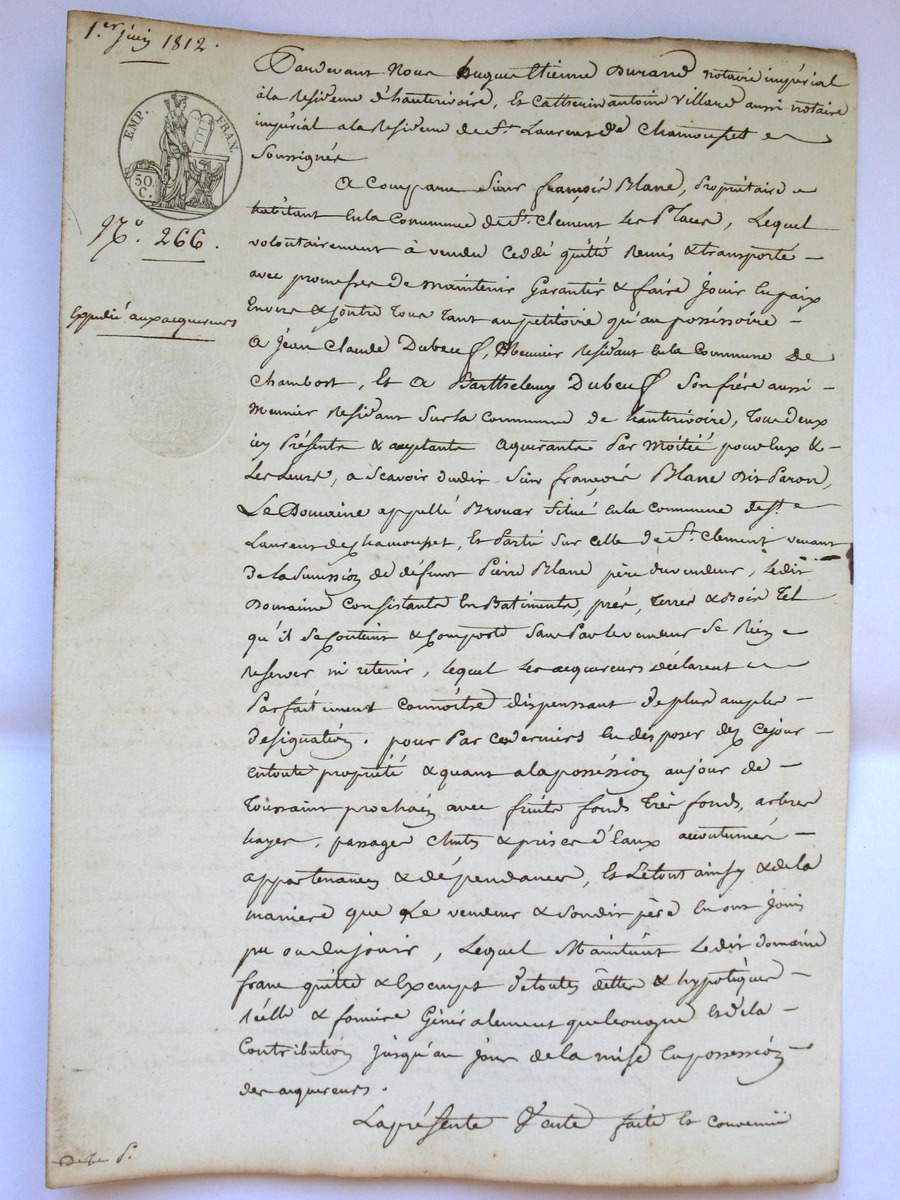 1.er juin 1812.
EMP. FRAN.
50. C.
N.o 266.
Expédié aux acquereurs
Pardevant Nous hugues Etienne Durand notaire impérial
à la Residence d'hauterivoire, et Catherin antoine Villard aussi notaire
impérial a la Residence de St. Laurent de Chamousset
Soussignés
A Comparu Sieur françois Blanc, Propriétaire
habitant En la Commune de St. Clement Les Places, Lequel
volontairement à vendu Ceddé quitté Remis & transporté
avec promesses de maintenir Garantir & faire Jouir En paix
Envers & Contre tous tant au petitoire qu'au posséssoire
A Jean Claude Dubeuf, Meunier Residant En la Commune De
Chambost, Et A Barthelemy Dubeuf Son frère aussi
Meunier Residant Sur la Commune de hauterivoire, tous Deux
icy Présents & aceptants Aquerants Par Moitié pour Eux &
Les Leurs, a Scavoir dudit Sieur françois Blanc Dit Paron,
Le Domaine appellé Brouar Situé En la Commune de St.
Laurent de Chamousset, Et Partie Sur Celle de St. Clement venant
De la Succession de défunt Pierre Blanc père du vendeur, Le dit
Domaine Consistants En Batiments, prés, Terres & Bois Tel
qu'il Se Contient & Comporte Sans Par le vendeur Se Rien
Reserver ni retenir, Lequel Les acquereurs déclarent
Parfaitement Connoitre dispensant de plus ample
désignation. pour Par Ces derniers En disposer dez Cejour
En toute propriété & quant a la posséssion au jour de
Toussaint prochain avec fruits fonds Très fonds, arbres
hayes, passages Chutes & prises d'Eaux accoutumés
appartenances & dépendances, Et Le tout ainsy & de la
maniere que Le vendeur & Son dit père En ont Jouis
pu ou du Jouir, Lequel Maintient Le dit domaine
franc quitte & Exempt de toutes dettes & hypotèques
& fonciere Généralement quelconque Et de la
Contribution Jusqu'au Jour de la mise En posséssion
des aquereurs.
La présente Vente faite Et Convenue